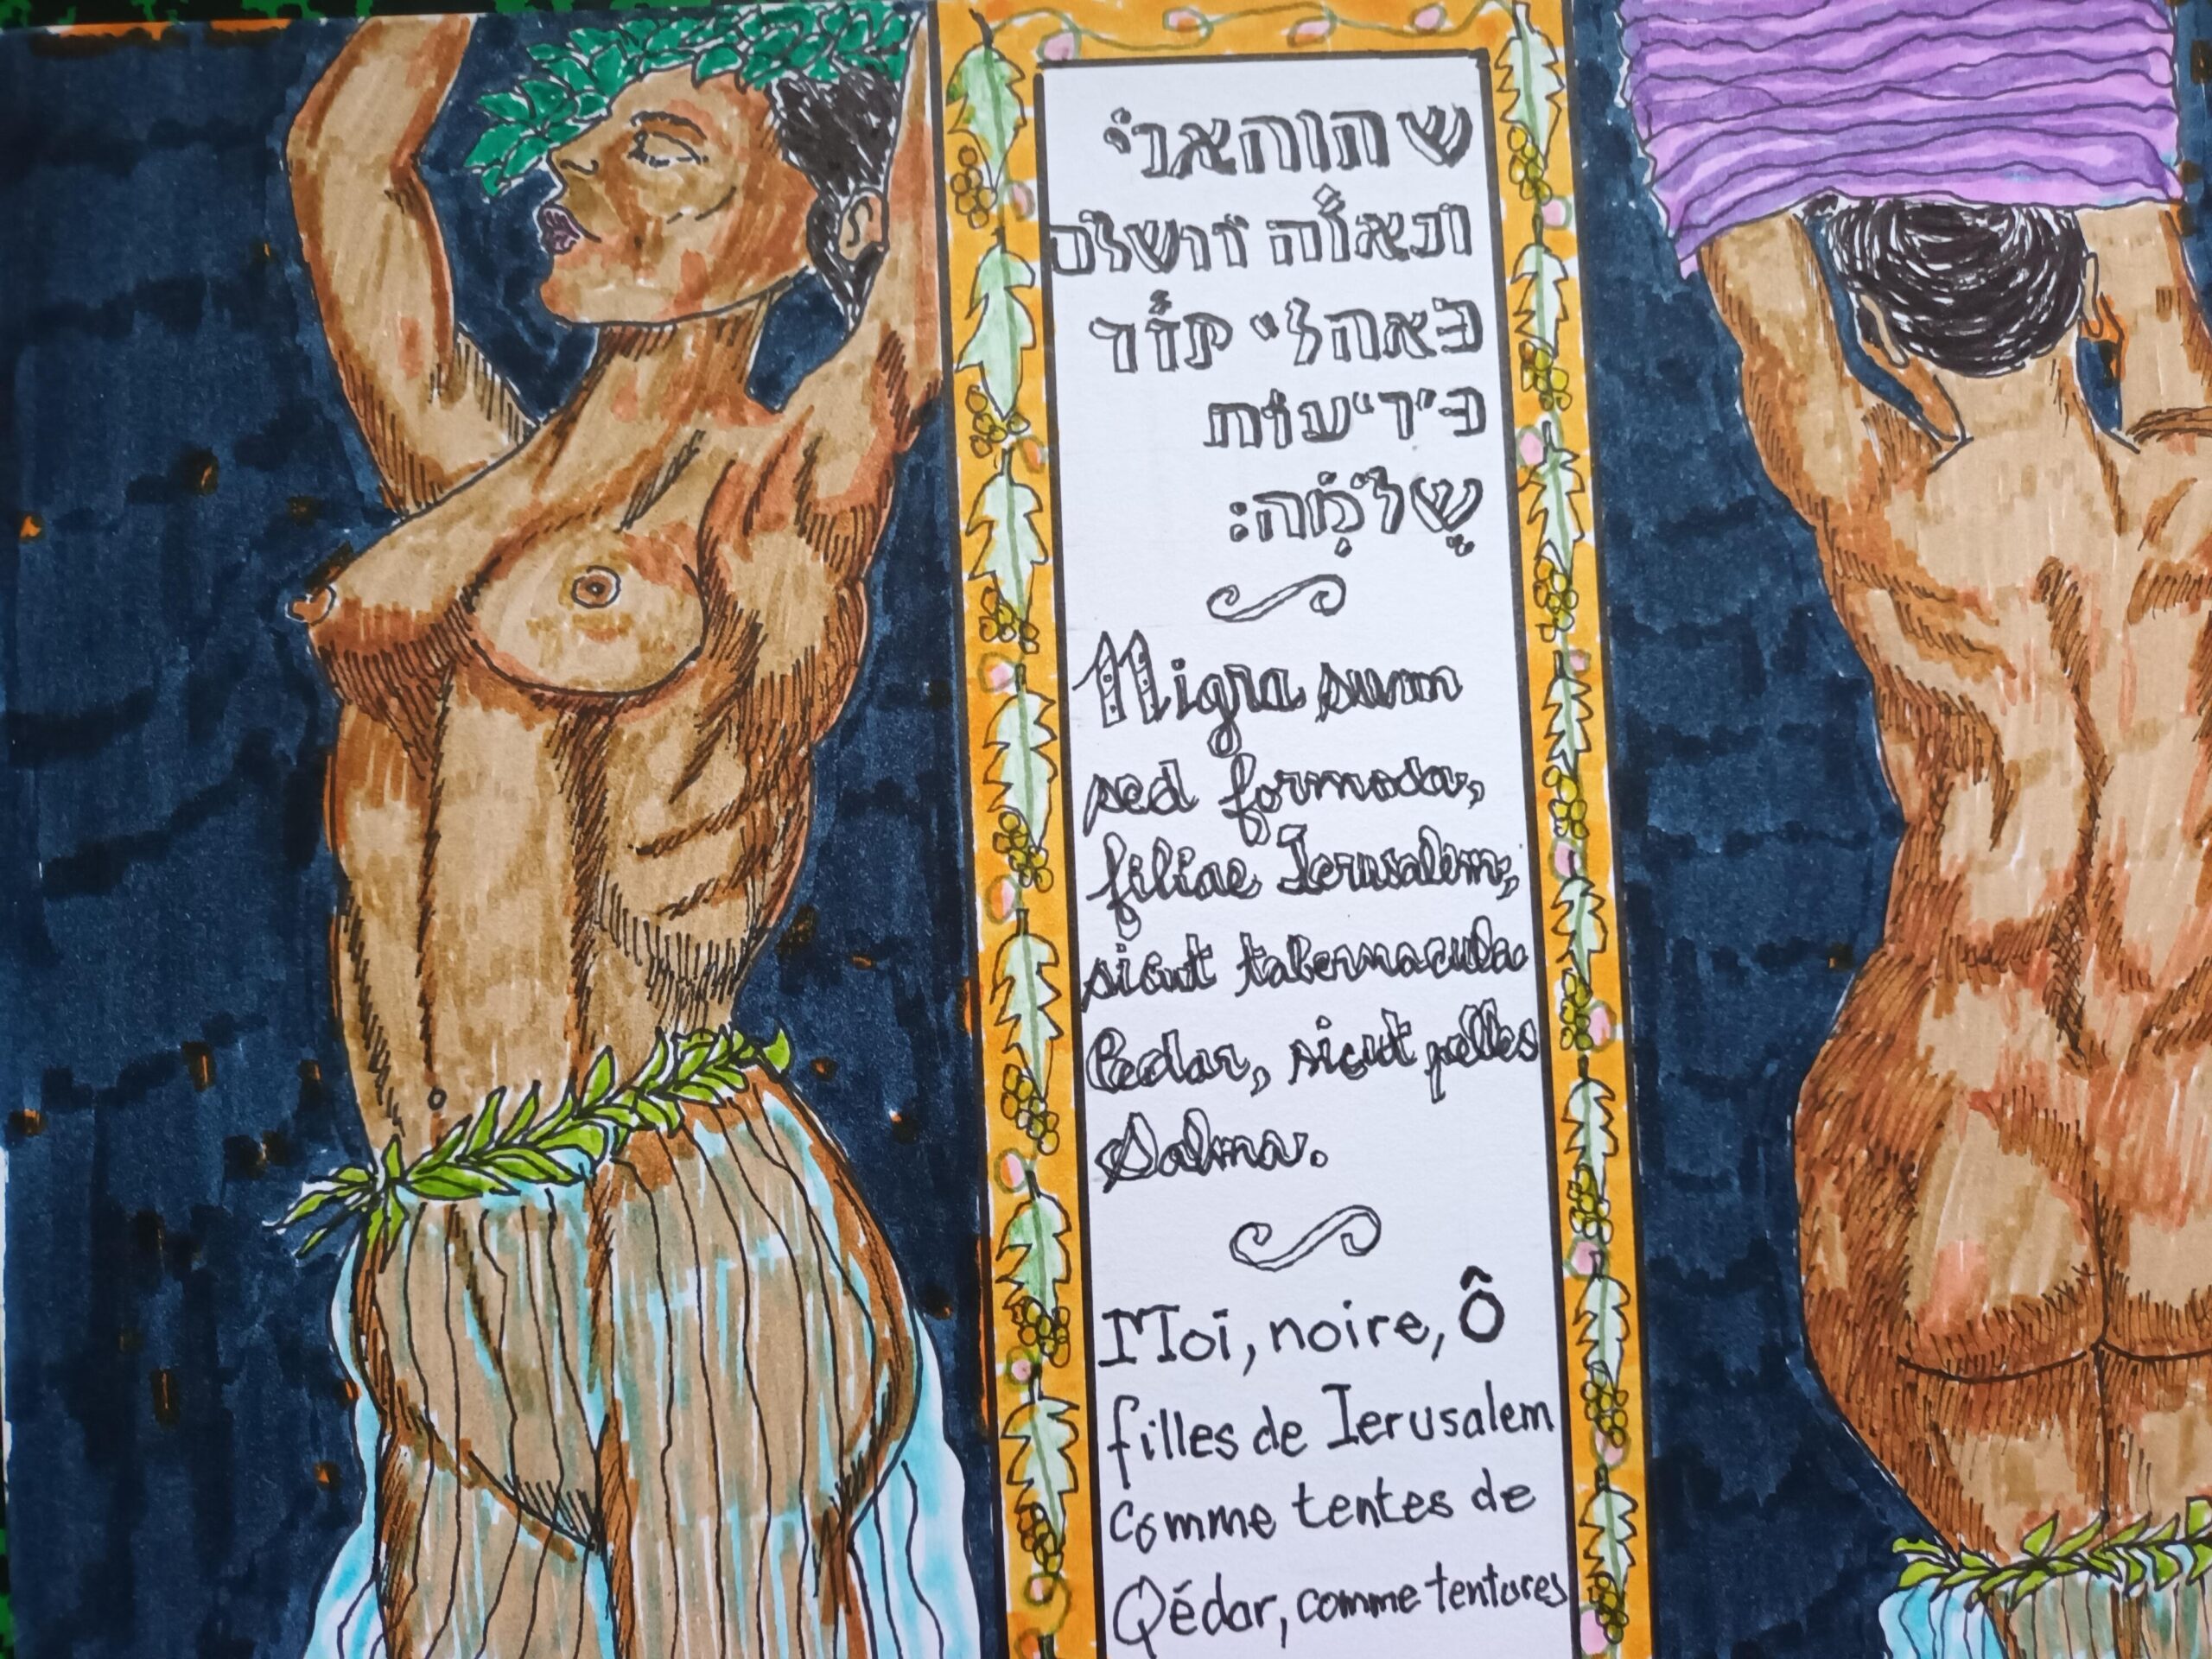 ש הוהאני
ונאוה ירושלם
כאהלי קדר
כיריעות
שָלמָה:
Nigra sum
sed formosa,
filiae Ierusalem,
sicut tabernacula
Cedar, sicut pelles
Salma.
Moi, noire, Ô
filles de Ierusalem
comme tentes de
Qédar, comme tentures